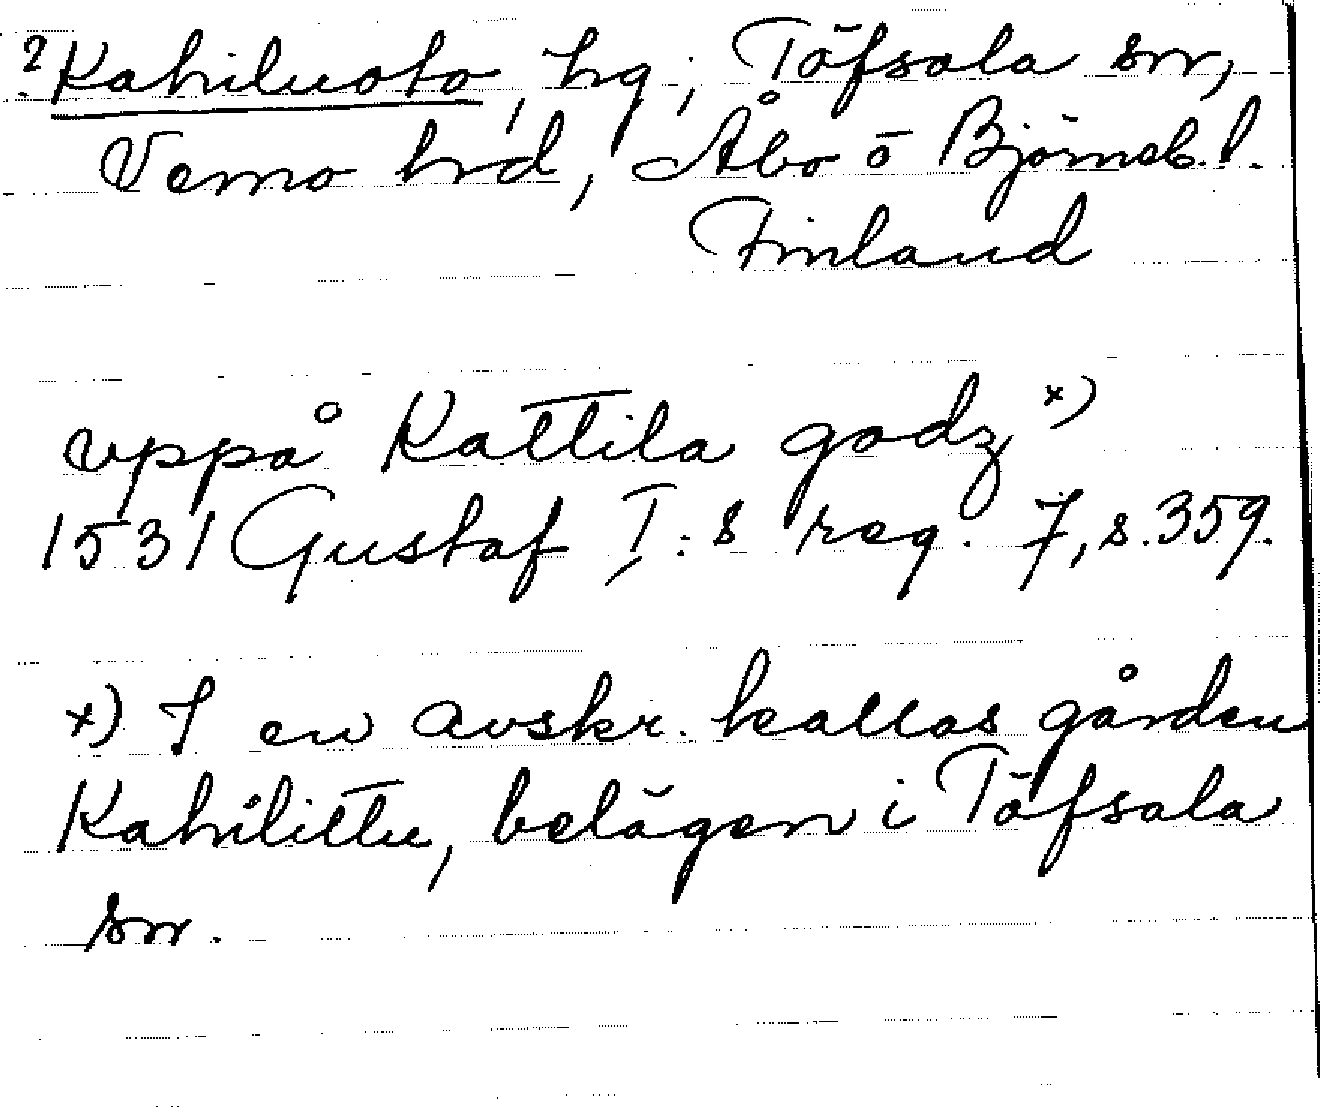 ? Kahiluoto, hg, Töfsala sn,
Vemo hrd, Åbo o Björneb. l.
Finland
uppå Kattila godz x)
1531 Gustaf I:s reg. 7, s. 359.
x) I en avskr. kallas gården
Kahilittu, belägen i Töfsala
sn.